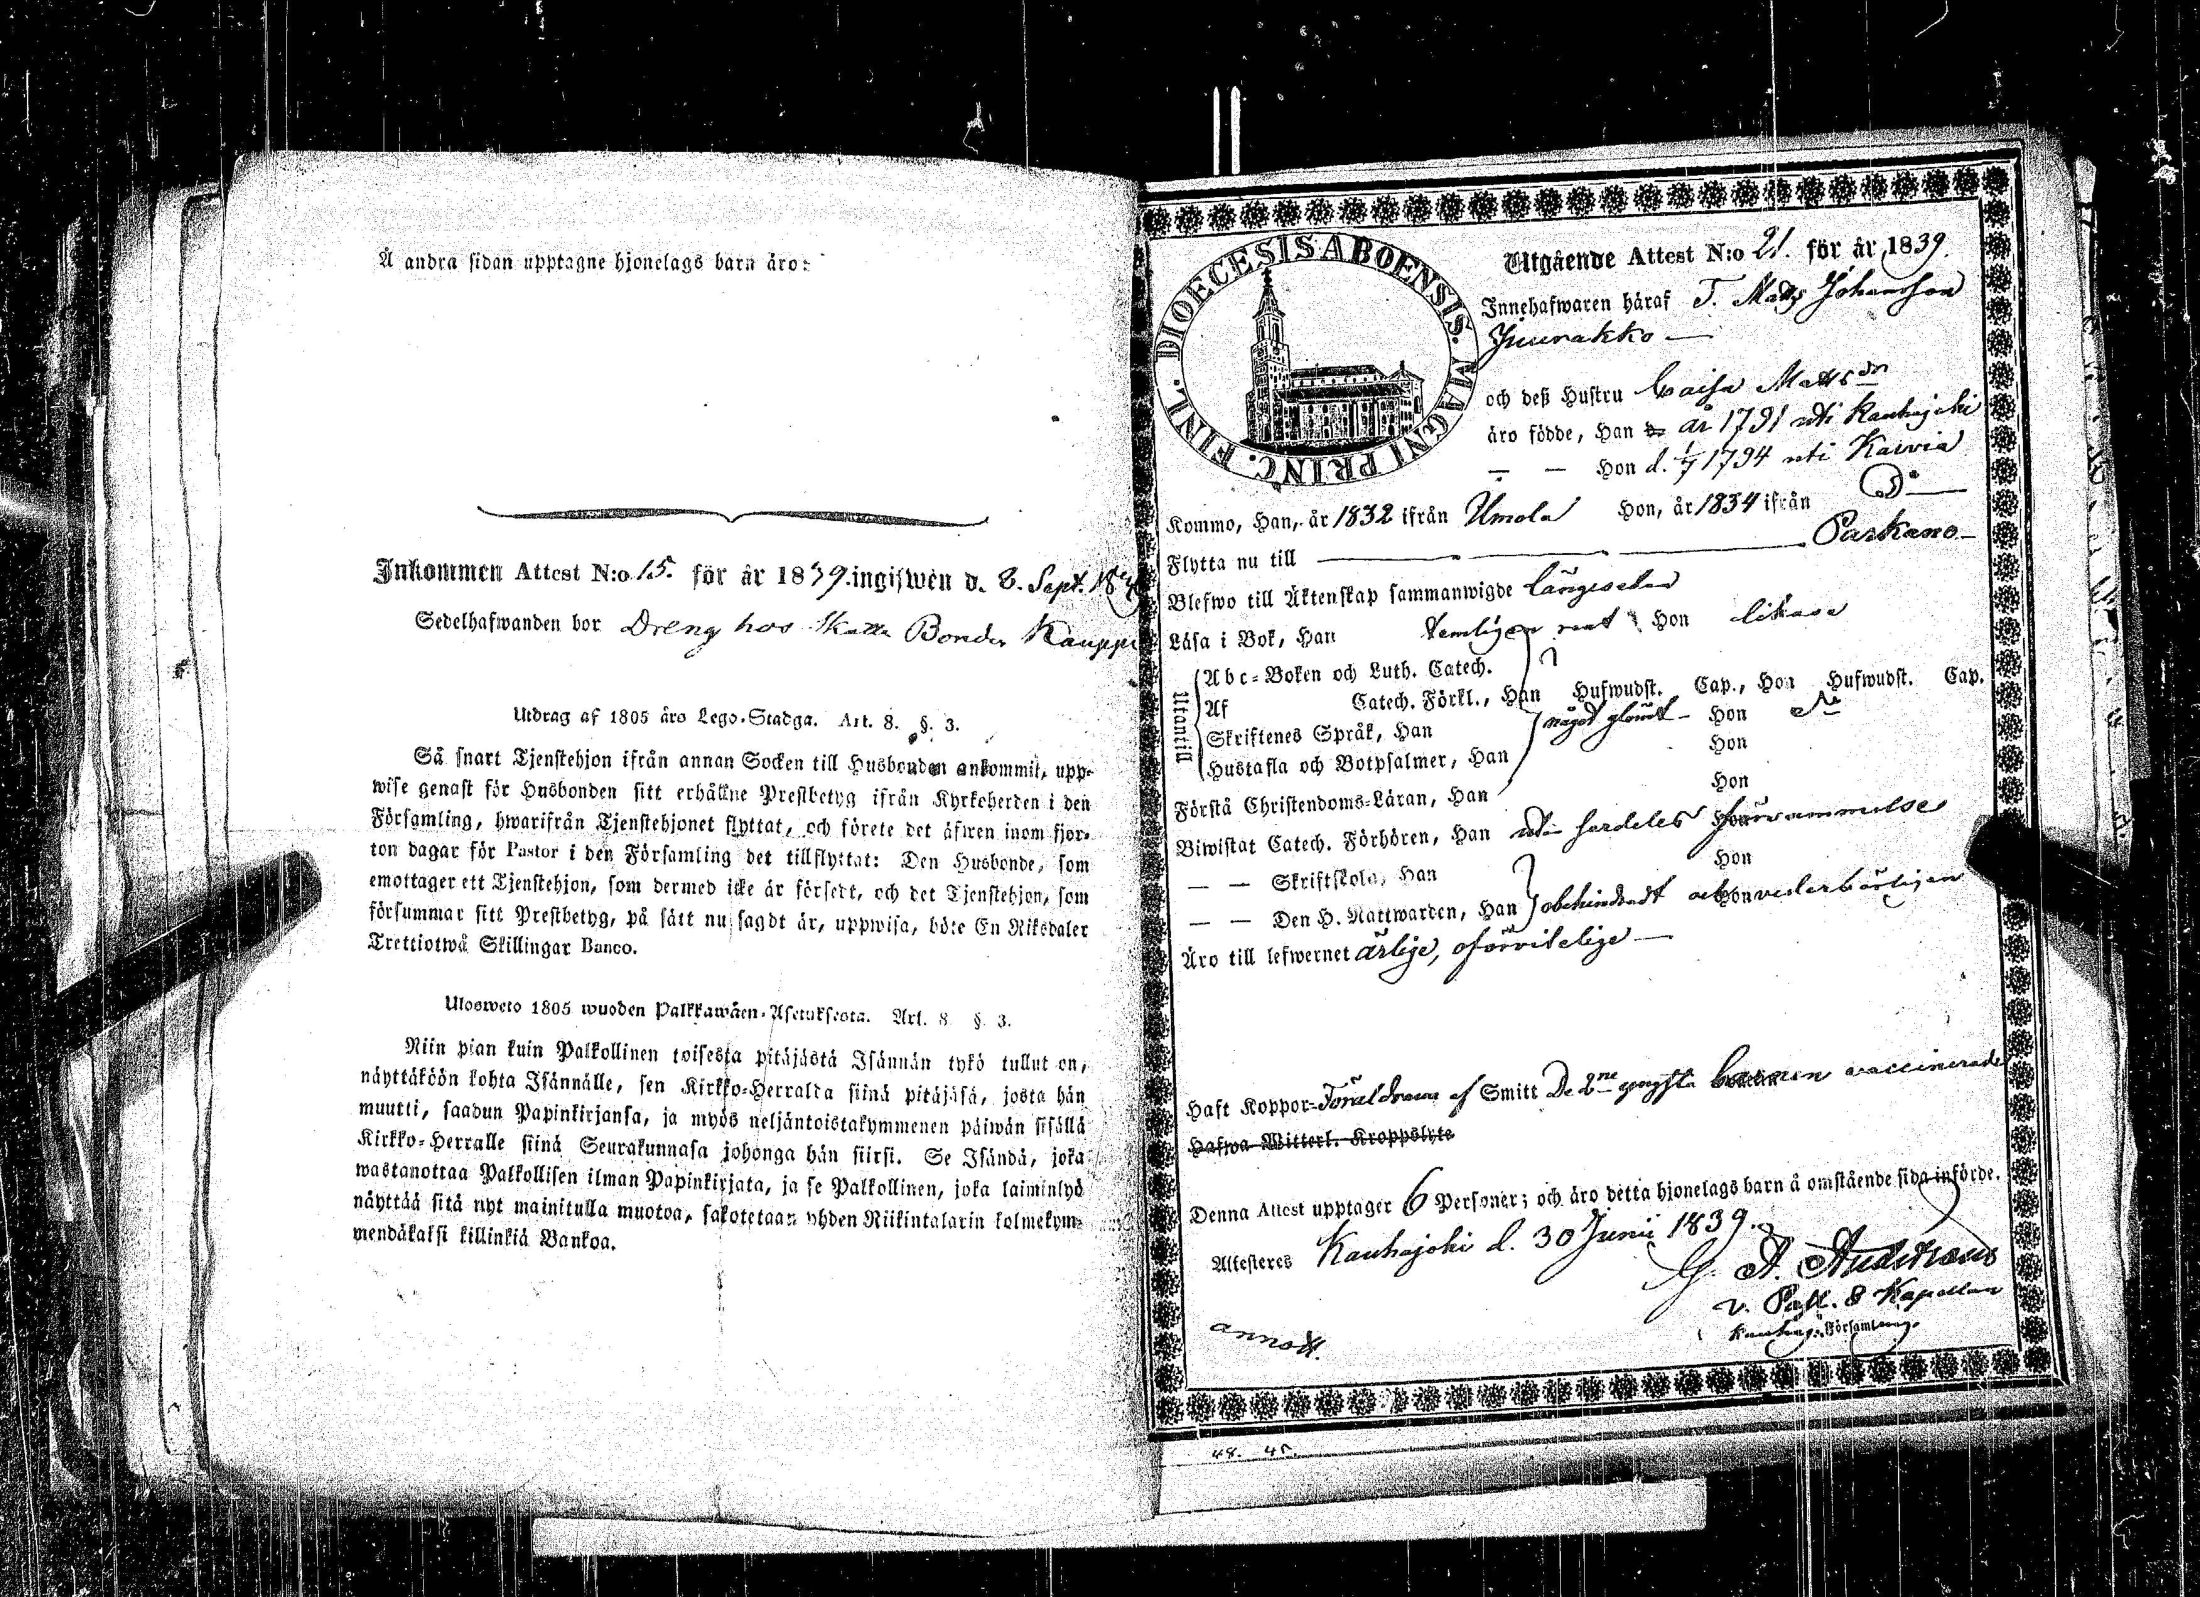 Å andra sidan upptagne hjonelags barn äro:
Inkommen Attest N:o 15. för år 1839. ingifwen d. 8. Sept. 18
Sedelhafwanden bor Dreng hos Skatte Bonden Kauppi
Utdrag af 1805 års Lego-Stadga. Art. 8. §. 3.
Så snart Tjenstehjon ifrån annan Socken till Husbonden ankommit, upp-
wise genast för Husbonden sitt erhållne Prestbetyg ifrån Kyrkoherden i den
Församling, hwarifrån Tjenstehjonet flyttat, och förete det äfwen inom fjor-
ton dagar för Pastor i den Församling det tillflyttat: Den Husbonde, som
emottager ett Tjenstehjon, som dermed icke är försedt, och det Tjenstehjon, som
försummar sitt Prestbetyg, på sätt nu sagdt är, uppwisa, böte En Riksdaler
Trettiotwå Skillingar Banco.
Ulosweto 1805 wuoden Palkkawäen-Asetuksesta. Art. 8 §. 3.
Niin pian kuin Palkollinen toisesta pitäjästä Isännän tykö tullut on,
näyttäköön kohta Isännälle, sen Kirkko-Herralta siinä pitäjäsä, josta hän
muutti, saadun Papinkirjansa, ja myös neljäntoistakymmenen päiwän sisällä
Kirkko-Herralle siinä Seurakunnasa johonga hän siirsi. Se Isändä, joka
wastanottaa Palkollisen ilman Papinkirjata, ja se Palkollinen, joka laiminlyö
näyttää sitä nyt mainitulla muotoa, sakotetaan yhden Riikintalarin kolmekym-
mendäkaksi killinkiä Bankoa.
DIOECESIS ABOENSIS. MAGNI PRINC. FINL.
Utgående Attest N:o 21. för år 1839.
Innehafwaren häraf T. Matts Johansson
Juurakko
och deß Hustru Caisa Mattsdr
äro födde, Han år 1791 uti Kauhajoki
— — Hon d. 1/7 1794 uti Kairia
Kommo, Han, år 1832 ifrån Umola Hon, år 1834 ifrån Do
Flytta nu till Parkano
Blefwo till Äktenskap sammanwigde längesedan
Läsa i Bok, Han temligen rent Hon likaså
Utantill
Abc-Boken och Luth. Catech.
Af Catech. Förkl., Han Hufwudst. Cap., Hon Hufwudst. Cap.
Skriftenes Språk, Han något glömt Hon
Hustafla och Botpsalmer, Han Hon
Förstå Christendoms-Läran, Han Hon
Biwistat Catech. Förhören, Han utan serdeles försummelse Hon
— — Skriftskola, Han Hon
— — Den H. Nattwarden, Han obehindradt och vederbörligen Hon
Äro till lefwernet ärlige, oförvitelige
Haft Koppor- Föräldrarna af Smitt De 2ne yngsta barnen vaccinerade
Hafwa Witterl. Kroppslyte
Denna Attest upptager 6 Personer; och äro detta hjonelags barn å omstående sida införde.
Attesteres Kauhajoki d. 30 Junii 1839.
G. A.
v. Past. & Kapellan
Församling.
annott.
48. 45.